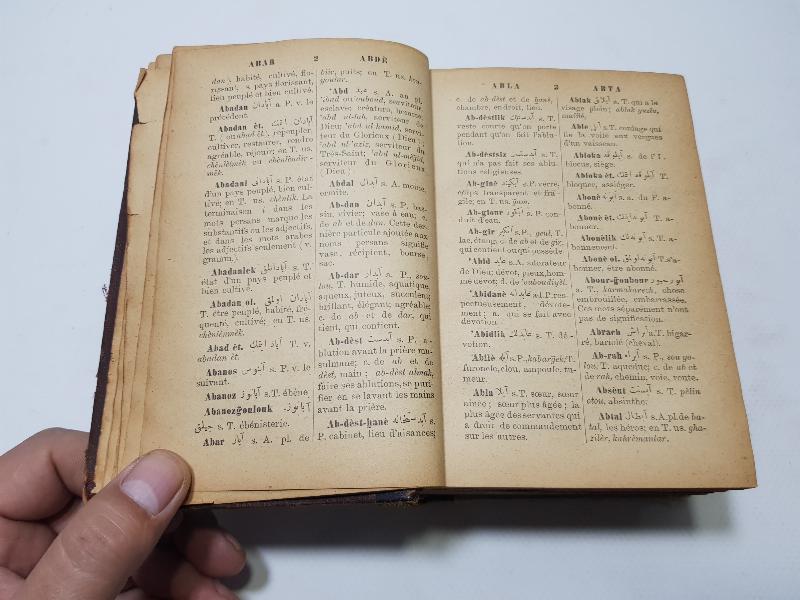 ABAR 2 ABDÈ
dan), habité, cultivé, flo-
rissant; s. pays florissant,
lieu peuplé et bien cultivé.
Abadan آبادان a. P. v. le
précédent.
Abadan ét. آبادان ایتمك
T. (ou abad ét.), repeupler,
cultiver, restaurer, rendre
agréable, réjouir; en T. us.
chénlémék ou chénléndir-
mék.
Abadani آبادانی s. P. état
d'un pays peuplé, bien cul-
tivé; en T. us. chénlik. La
terminaison i dans les
mots persans marque les
substantifs ou les adjectifs,
et dans les mots arabes
les adjectifs seulement (v.
gramm.).
Abadanlek آبادانلق s. T.
état d'un pays peuplé et
bien cultivé.
Abadan ol. آبادان اولمق
T. être peuplé, habité, fré-
quenté, cultivé; en T. us.
chénlénmék.
Abad ét. آباد ایتمك T. v.
abadan ét.
Abanos آبنوس s. P. v. le
suivant.
Abanoz آبانوز s. T. ébène.
Abanozğoulouk آبانوز
جیلق s. T. ébénisterie.
Abar آبار s. A. pl. de
biir, puits; en T. us. kou-
yoular.
'Abd عبد s. A. au pl.
'ibad ou 'ouboud, serviteur,
esclave; créature, homme;
'abd ul-lah, serviteur de
Dieu; 'abd ul-hamid, servi-
teur du Glorieux (Dieu);
'abd ul-'aziz, serviteur du
Très-Saint; 'abd ul-médjid,
serviteur du Glorieux
(Dieu).
Abdal آبدال s. A. moine,
ermite.
Ab-dan آبدان s. P. bas-
sin, vivier; vase à eau; c.
de ab et de dan. Cette der-
nière particule ajoutée aux
noms persans signifie
vase, récipient, bourse,
sac.
Ab-dar آبدار a. P., sou-
lou, T. humide, aquatique,
aqueux, juteux, succulent;
brillant, élégant, agréable;
c. de ab et de dar, qui
tient, qui contient.
Ab-dèst آبدست s. P. a-
blution avant la prière mu-
sulmane; c. de ab et de
dèst, main; ab-dèst almak,
faire ses ablutions, se puri-
fier en se lavant les mains
avant la prière.
Ab-dèst-hanè آبدستخانه s.
P. cabinet, lieu d'aisances;
ABLA 3 ABTA
c. de ab-dèst et de hanè,
chambre, endroit, lieu.
Ab-dèstlik آبدستلك s. T.
veste courte qu'on porte
pendant qu'on fait l'ablu-
tion.
Ab-dèstsiz آبدستسز a. T.
qui n'a pas fait ses ablu-
tions religieuses.
Ab-ginè آبگینه s. P. verre,
corps transparent et fra-
gile; en T. us. ğam.
Ab-giour آبگور s. P. con-
duit d'eau.
Ab-gir آبگیر s. P., geul, T.
lac, étang; c. de ab et de gir,
qui contient ou qui possède.
'Abid عابد s. A. adorateur
de Dieu; dévot, pieux, hom-
me dévot; d. de 'ouboudiyèt.
'Abidanè عابدانه ad. P. res-
pectueusement, dévote-
ment; a. qui se fait avec
dévotion.
'Abidlik عابدلك s. T. dé-
votion.
Abilè آبله s. P., kabarğek, T.
furoncle, clou, ampoule, tu-
meur.
Abla آبلا s. T. sœur, sœur
aînée; sœur plus âgée; la
plus âgée des servantes qui
a droit de commandement
sur les autres.
Ablak آبلاق a. T. qui a la
visage plein; ablak yuzlu,
mafflé.
Able آبلی s. T. cordage qui
lie la voile aux vergues
d'un vaisseau.
Abloka آبلوقه s. de l'I.
blocus, siège.
Abloka ét. آبلوقه ایتمك T.
bloquer, assiéger.
Abonè آبونه a. du F. a-
bonné.
Abonè ét. آبونه ایتمك T. a-
bonner.
Abonèlik آبونه لك s. T. a-
bonnement.
Abonè ol. آبونه اولمق T. s'a-
bonner, être abonné.
Abour-ğoubour آبور جبور
a. T., karmakarech, chose
embrouillée, embarrassée.
Ces mots séparément n'ont
pas de signification.
Abrach آبراش a. T. bigar-
ré, bariolé (cheval).
Ab-rah آبراه s. P., sou yo-
lou, T. aqueduc; c. de ab et
de rah, chemin, voie, route.
Absènt آبسنت s. T. pèlin
otou, absinthe.
Abtal آبطال s. A. pl. de ba-
tal, les héros; en T. us. gha-
zilèr, kahrémanlar.